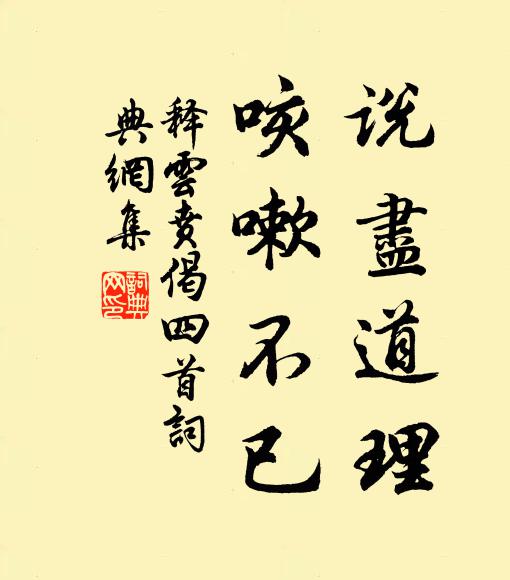 說盡道理
咳嗽不已
釋雲賁偈四首詞
典網集
詞典網印